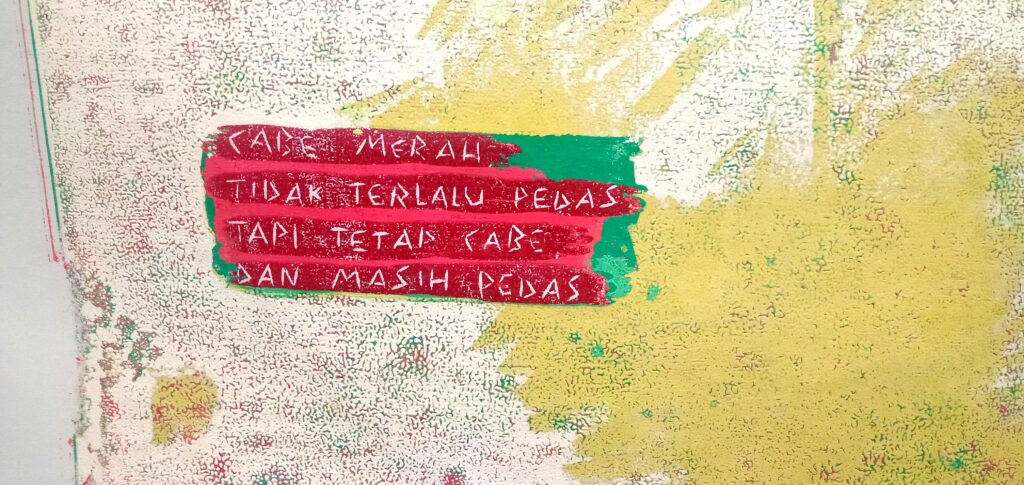 CABE MERAH
TIDAK TERLALU PEDAS
TAPI TETAP CABE
DAN MASIH PEDAS